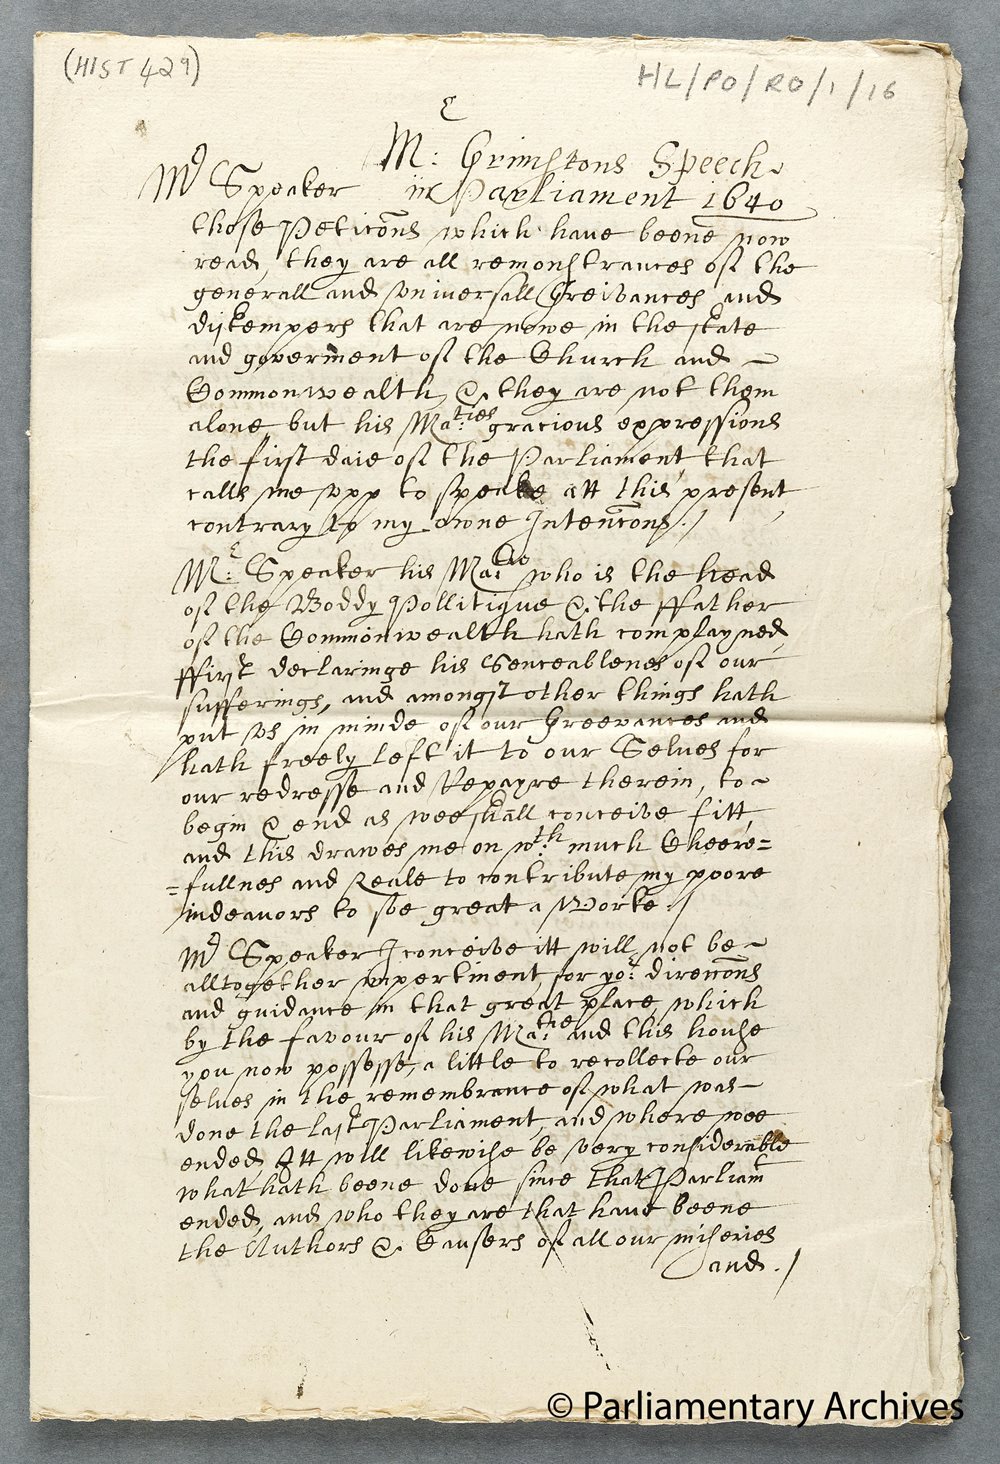 (HIST 429)
HL/PO/RO/1/16
Mr: Grimstons Speech
in Parliament 1640
Mr Speaker
those Peticons which have beene now
read, they are all remonstrances of the
generall and vniversall Greivances and
distempers that are nowe in the state
and goverment of the Church and
Commonwealth, & they are not them
alone but his Ma:ties gracious expressions
the first daie of the Parliament, that
calls me vpp to speake att this present,
contrary to my owne Intencons./
Mr: Speaker his Ma:tie who is the head
of the Boddy Pollitique & the ffather
of the Commonwealth hath complayned,
ffirst declaringe his Senceablenes of our
sufferings, and amongst other things hath
put vs in minde of our Greevances and
hath freely left it to our Selves for
our redresse and Repayre therein, to
begin & end as wee shall conceive fitt,
and this drawes me on wth much Cheere=
=fullnes and Zeale to contribute my poore
indeavors to soe great a Worke./
Mr Speaker I conceive itt will not be
alltogether impertinent, for yor: direccons
and guidance in that great place, which
by the favour of his Ma:tie and this house
you now possesse, a little to recollecte our
selves in the remembrance of what was
done the last Parliament, and where wee
ended, Itt will likewise be very considerable
what hath beene done since that Parliamt
ended, and who they are that have beene
the Authors & Causers of all our miseries
and./
© Parliamentary Archives